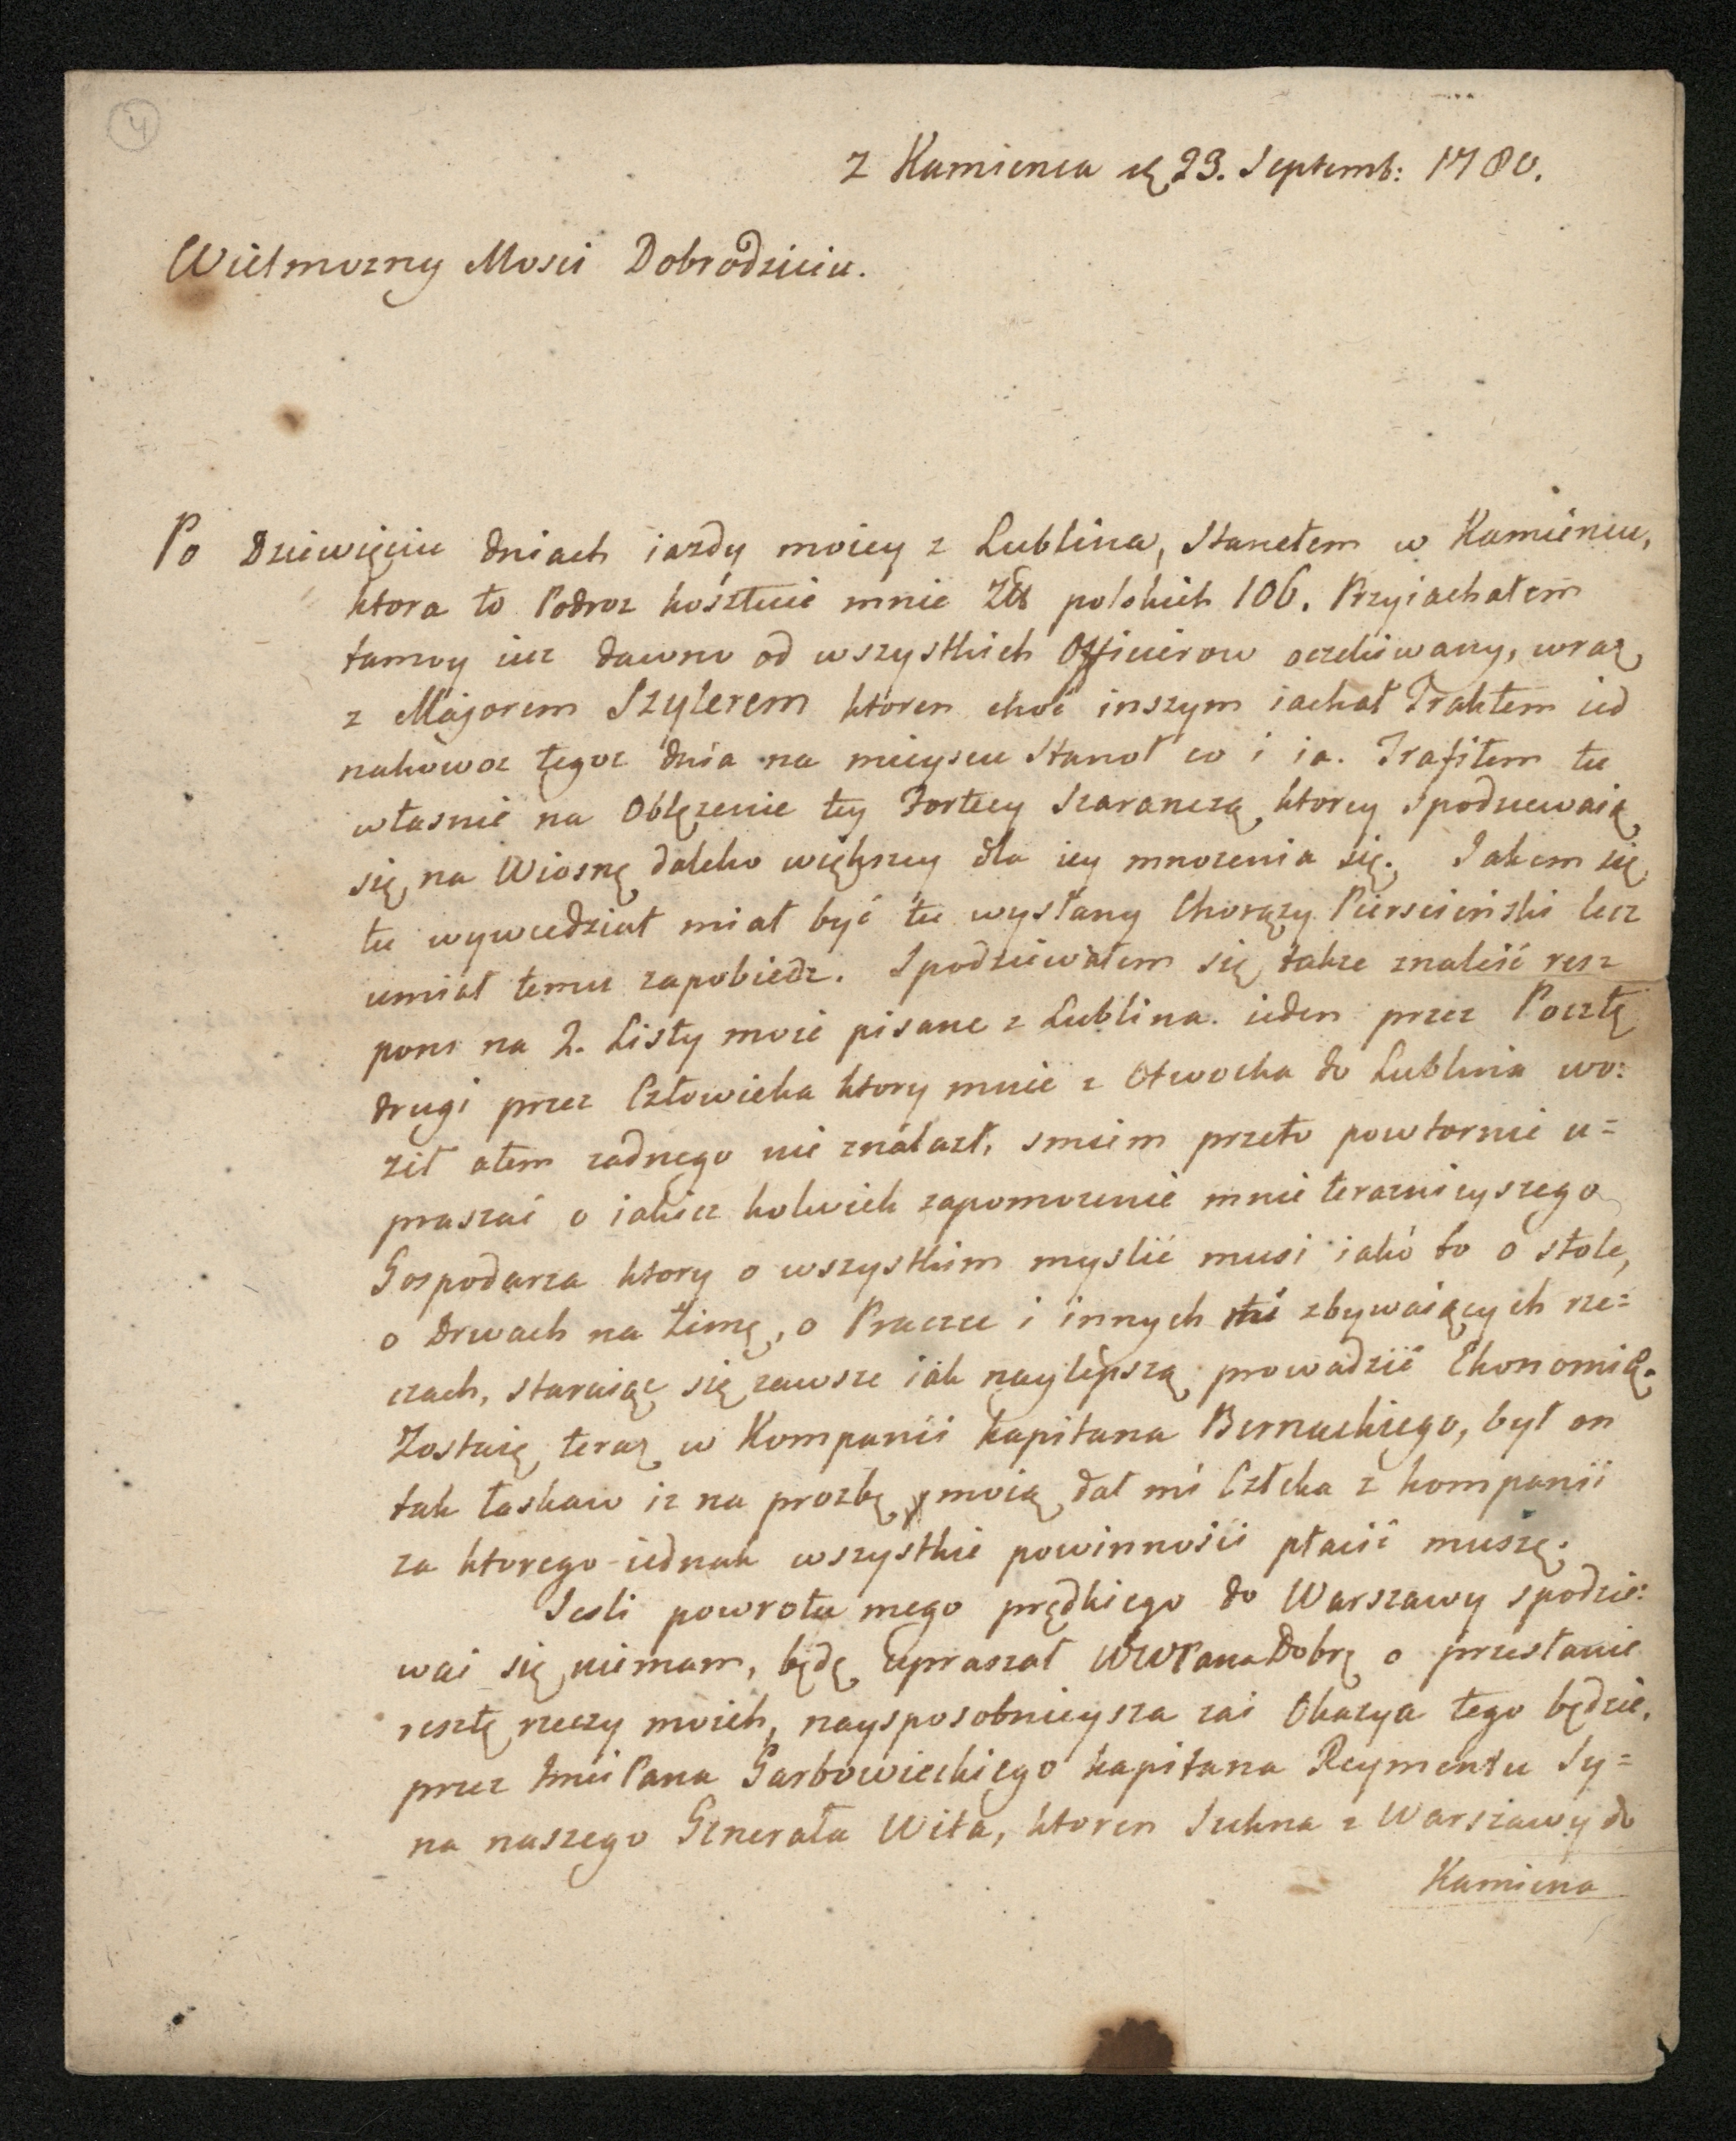 4
z Kamienca d 23. Septemb: 1780.
Wielmozny Mosci Dobrodzieiu.
Po Dziewięciu dniach iazdy moiey z Lublina, Stanełem w Kamiencu,
ktora to Podroz kosztuie mnie Zł polskich 106. Przyiachałem
tamoy iuz dawno od wszystkich Officierow oczekiwany, wraz
z Majorem Szylerem ktoren choć inszym iachał Traktem ied
nakowoz tegoz dnia na mieyscu Stanoł co i ia. Trafiłem tu
własnie na Oblęzenie tey Fortecy Szarańczą, ktorey spodziewaią
się na Wiosnę daleko większey dla iey mnozenia się. Jakem się
tu wywiedział miał być tu wysłany Chorązy Pierscienski lecz
umiał temu zapobiedz. Spodziewałem się takze znaleść resz
pons na 2. Listy moie pisane z Lublina. ieden przez Pocztę
drugi przez Człowieka ktory mnie z Otwocka do Lublina wo:
ził alem zadnego nie znalazł, smiem przeto powtornie u=
praszać o iakiez kolwiek zapomozenie mnie teraznieyszego
Gospodarza ktory o wszystkim myslić musi iako to o stole,
o Drwach na Zimę, o Praczce i innych nie zbywaiących rze=
czach, staraiąc się zawsze iak naylepszą prowadzić Ekonomią.
Zostaię teraz w Kompanii kapitana Biernackiego, był on
tak łaskaw iz na prozbę moią dał mi Człeka z kompanii
za ktorego iednak wszystkie powinności płacić muszę.
Jesli powrotu mego prędkiego do Warszawy spodzie:
wać się niemam, będę upraszał WWPana Dobrę o przesłanie
resztę rzeczy moich, naysposobnieysza zaś Okazya tego będzie,
przez Jmci Pana Garbowieckiego kapitana Reymentu Sy=
na naszego Generała Wita, ktoren Sukna z Warszawy do
Kamienca